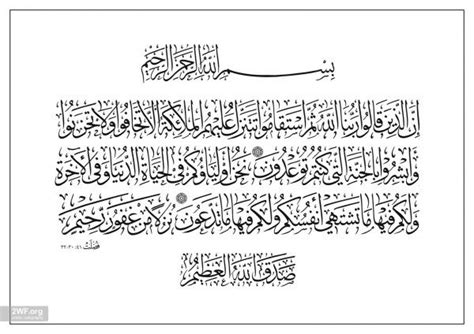 بسم الله الرحمن الرحيم
إن الذين قالوا ربنا الله ثم استقاموا تتنزل عليهم الملائكة ألا تخافوا ولا تحزنوا
وأبشروا بالجنة التي كنتم توعدون نحن أولياؤكم في الحياة الدنيا وفي الآخرة
ولكم فيها ما تشتهي أنفسكم ولكم فيها ما تدعون نزلا من غفور رحيم
فصلت ٤١: ٣٠-٣٢
صدق الله العظيم
2WF.org